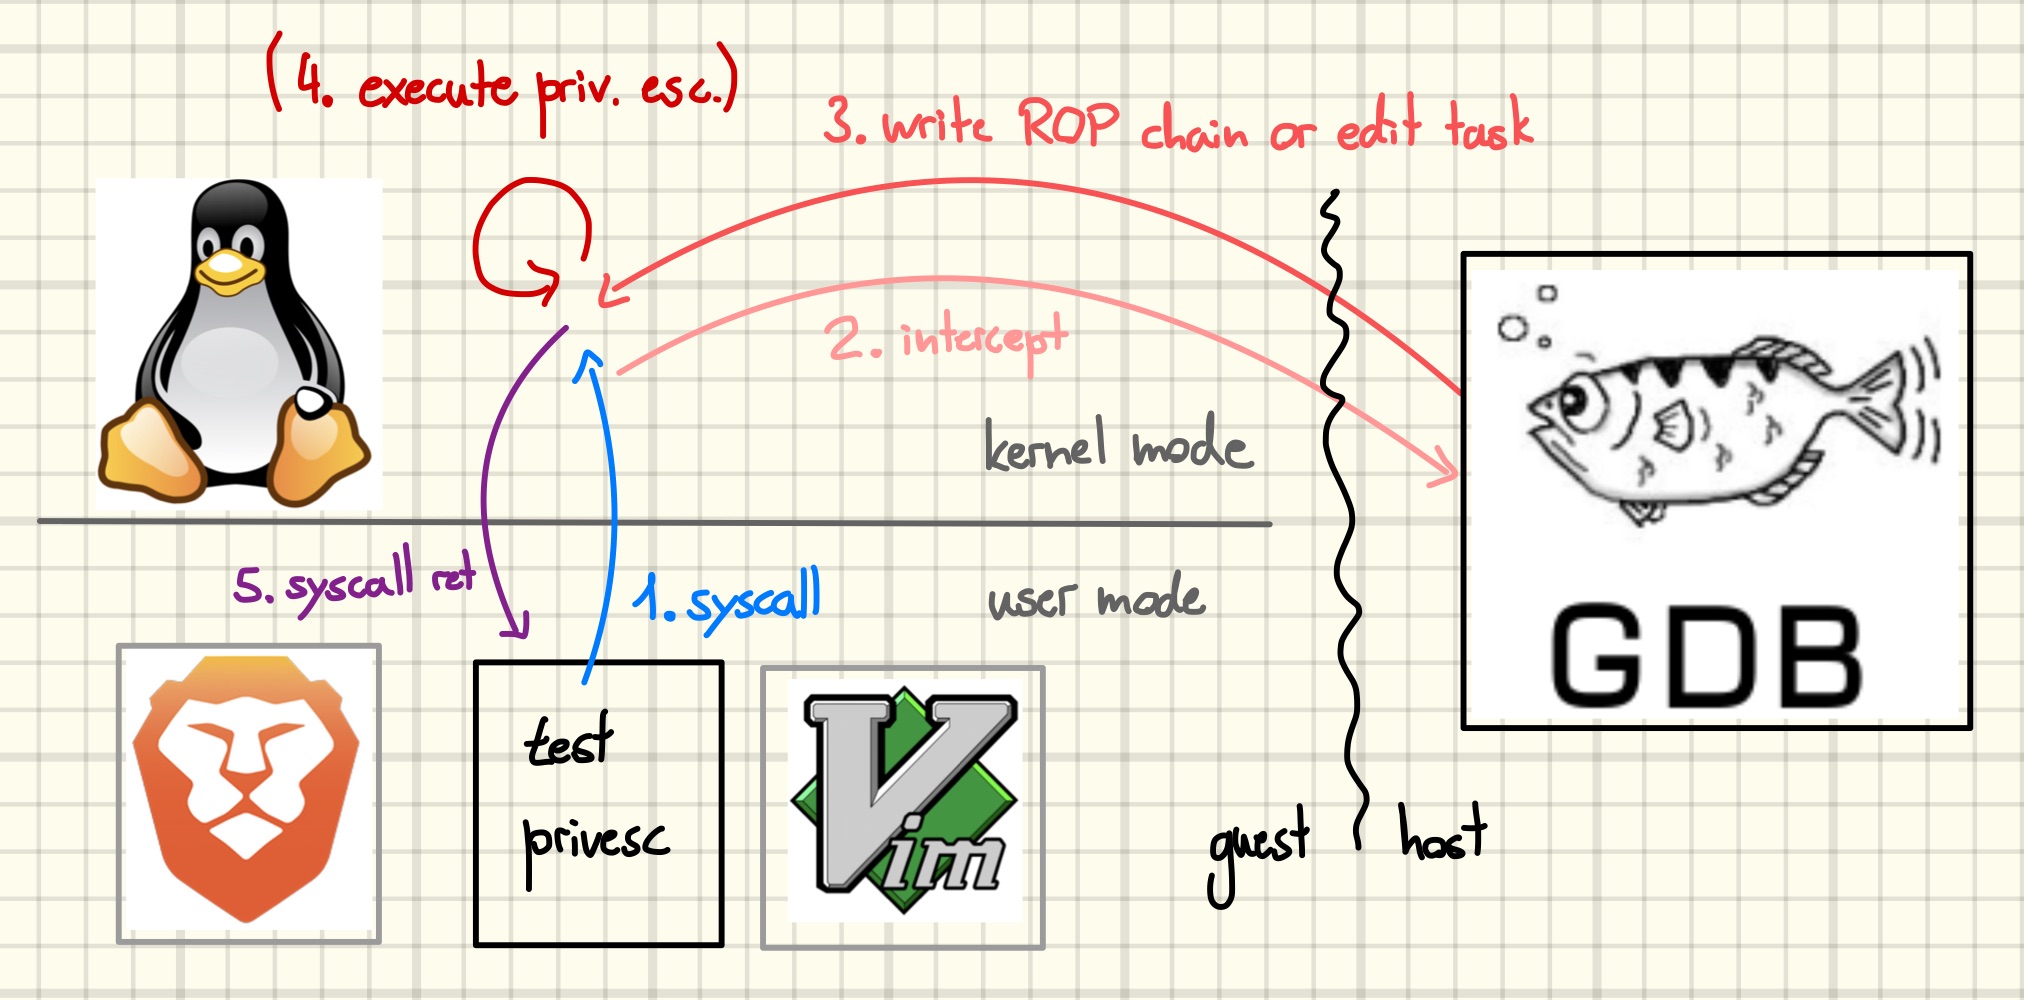 (4. execute priv. esc.)
3. write ROP chain or edit task
2. intercept
kernel mode
5. syscall ret
1. syscall
user mode
GDB
test
privesc
Vim
guest
host